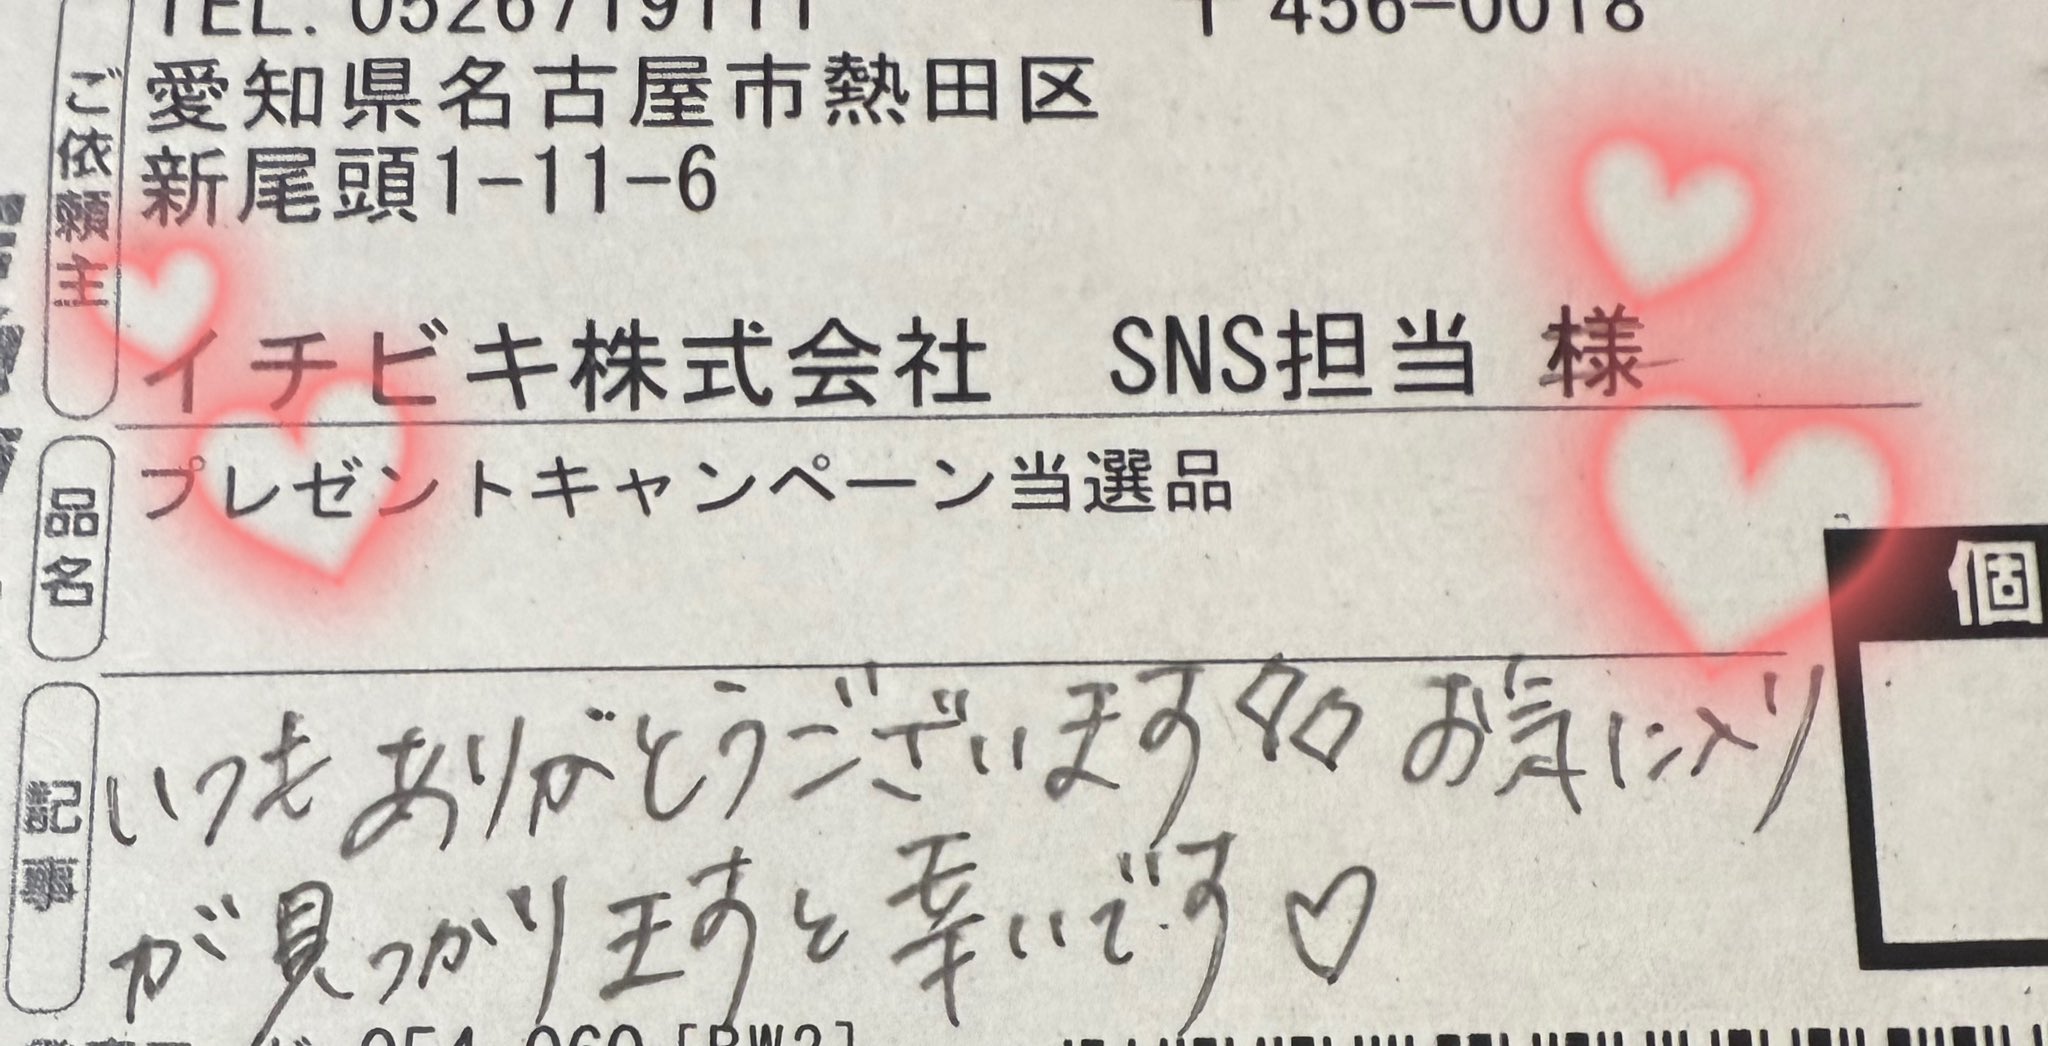 TEL. 0526719111 〒456-0018
ご依頼主
愛知県名古屋市熱田区
新尾頭1-11-6
イチビキ株式会社 SNS担当 様
品名
プレゼントキャンペーン当選品
個
記事
いつもありがとうございます お気に入り
が見つかりますと幸いです♡